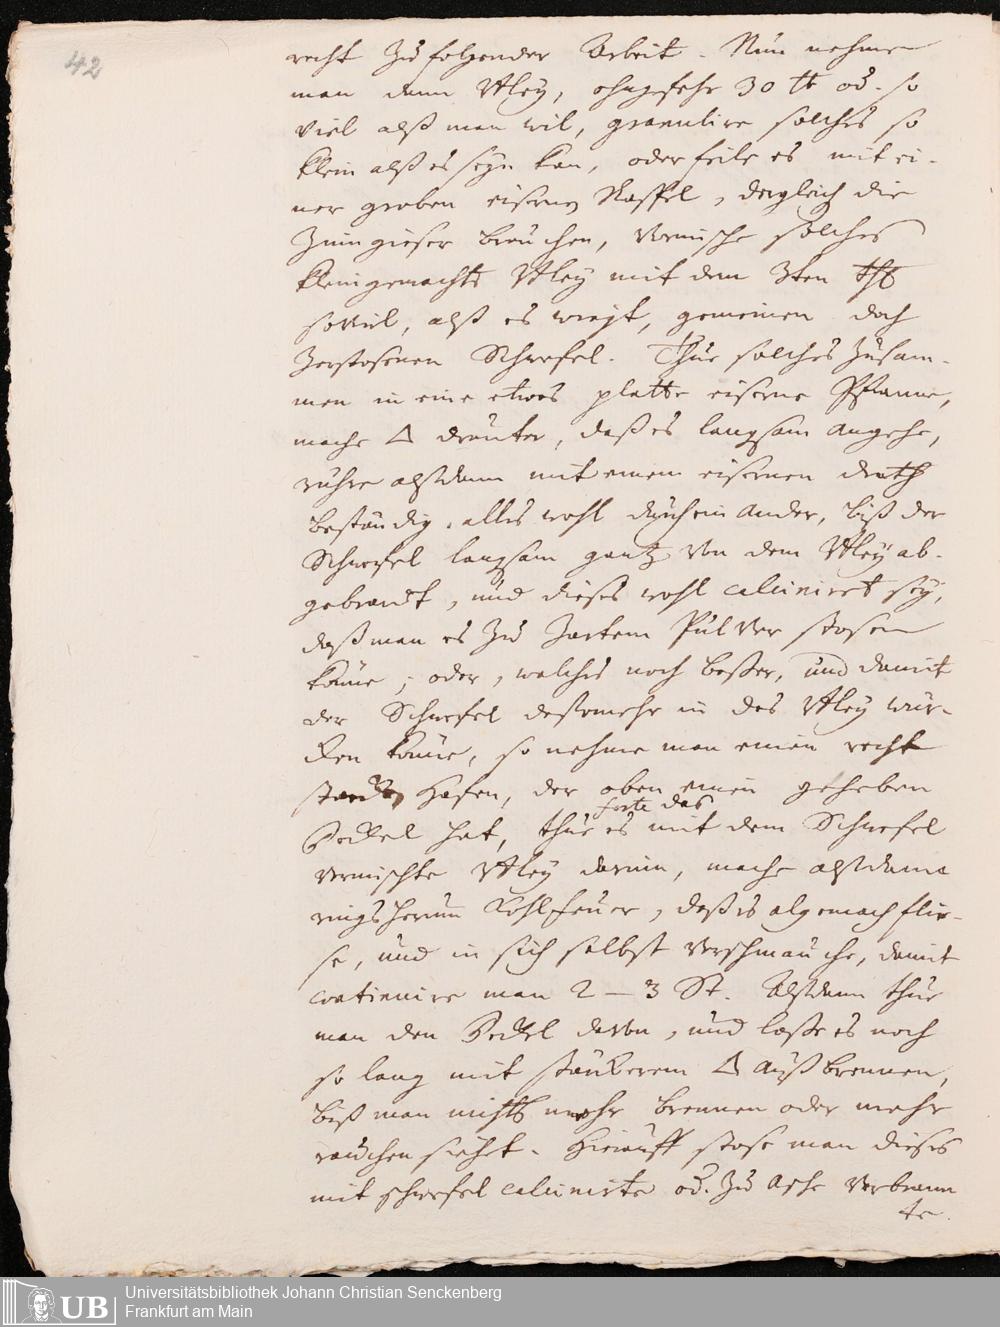 42
recht zu folgender Arbeit. Nun nehme
man dann Bley, ohngefehr 30 ℔ od. so
viel alß man wil, granulire solches so
klein alß es seyn kan, oder feile es mit ei-
ner groben eisernen Raspel, dergleich die
Zinngieser brauchen, vermische solches
kleingemachte Bley mit dem 3ten Thl
soviel, alß es wiegt, gemeinen doch
zerstosenen Schwefel. Thue solches zusam-
men in eine etwas platte eiserne Pfanne,
mache △ drunter, daß es langsam angehe,
rühre alßdann mit einem eisernen drath
beständig, alles wohl durch ein ander, biß der
Schwefel langsam gantz von dem Bley ab-
gebrandt, und dieses wohl calcinirt sey,
daß man es zu zartem Pulver stosen
könne; oder, welches noch beßer, und damit
der Schwefel destomehr in das Bley wür-
ken könne, so nehme man einen recht
starken Hafen, der oben einen geheben
Deckel hat, thue das mit dem Schwefel
vermischte Bley darein, mache alßdann
rings herum Kohlfeuer, daß es algemach flie-
se, und in sich selbst verschmauche, damit
continuire man 2 – 3 St. Alßdann thue
man den Deckel davon, und laße es noch
so lang mit stärkerem △ außbrennen,
biß man nichts mehr brennen oder mehr
rauchen siehet. Hierauff stose man dieses
mit schwefel calcinirte od. zu Asche verbrann
te.
UB
Universitätsbibliothek Johann Christian Senckenberg
Frankfurt am Main